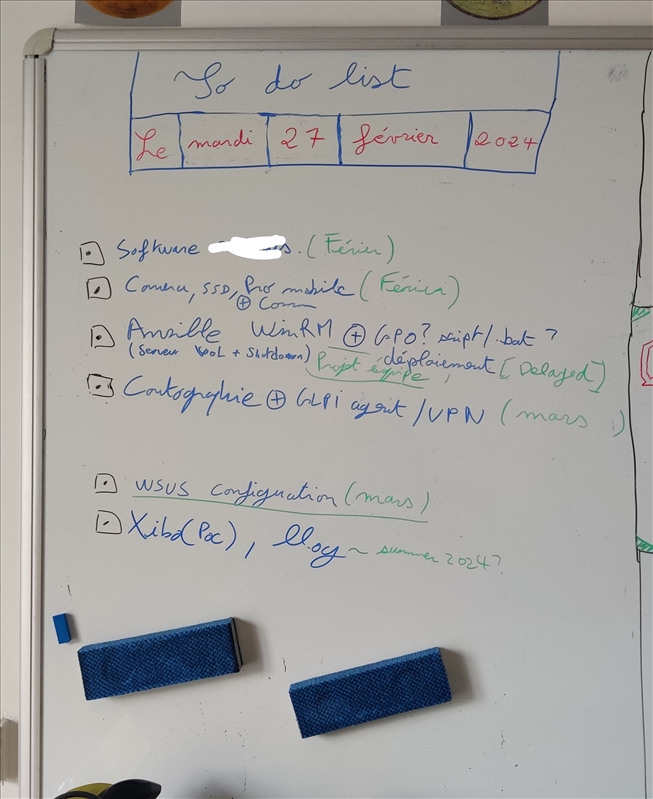 To do list
Le mardi 27 février 2024
Software (Février)
Camera, SSD, Pro mobile (Février)
⊕ Comm
Ansible WinRM ⊕ GPO? script/.bat?
(Serveur WoL + Shutdown) Projet équipe, déploiement [Delayed]
Cartographie ⊕ GLPI agent/VPN (mars)
WSUS configuration (mars)
Xibo (Poc), ~ summer 2024?